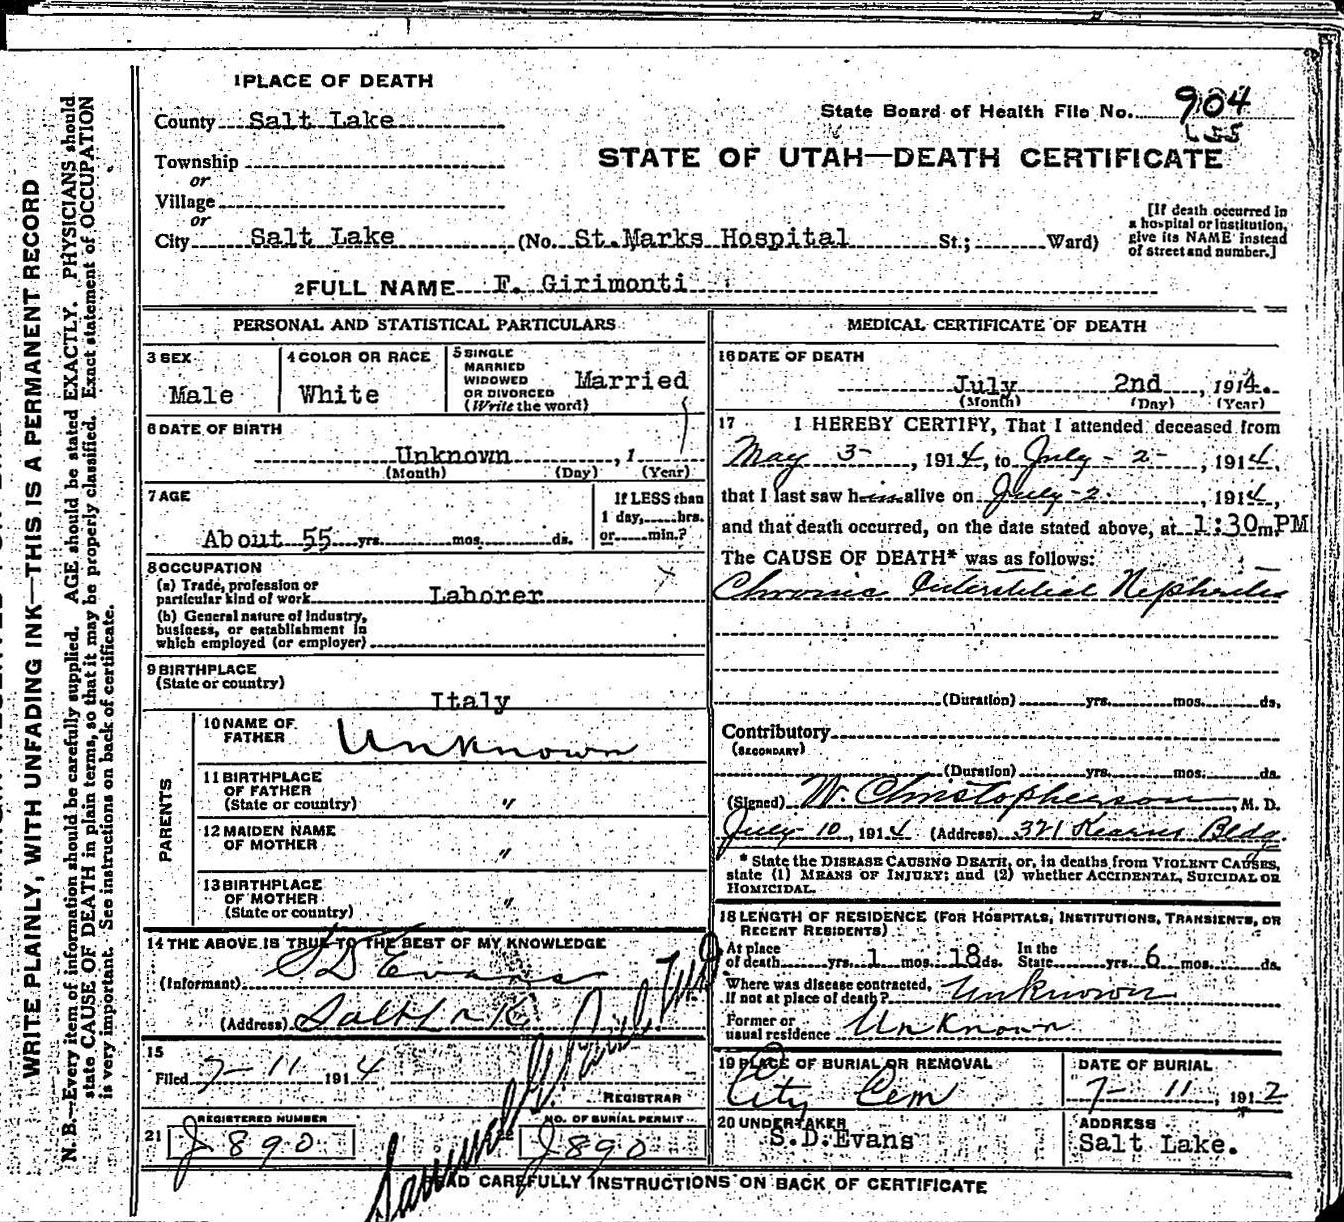 1 PLACE OF DEATH
County Salt Lake
State Board of Health File No. 904
Township
or
Village
or
STATE OF UTAH—DEATH CERTIFICATE
City Salt Lake (No. St.Marks Hospital St.; Ward)
[If death occurred in
a hospital or institution,
give its NAME instead
of street and number.]
2 FULL NAME F. Girimonti
PERSONAL AND STATISTICAL PARTICULARS
3 SEX
Male
4 COLOR OR RACE
White
5 SINGLE
MARRIED
WIDOWED
OR DIVORCED
(Write the word)
Married
6 DATE OF BIRTH
Unknown , 1
(Month) (Day) (Year)
7 AGE
About 55 yrs. mos. ds.
If LESS than
1 day, hrs.
or min.?
8 OCCUPATION
(a) Trade, profession or
particular kind of work Laborer
(b) General nature of industry,
business, or establishment in
which employed (or employer)
9 BIRTHPLACE
(State or country)
Italy
PARENTS
10 NAME OF
FATHER
Unknown
11 BIRTHPLACE
OF FATHER
(State or country) "
12 MAIDEN NAME
OF MOTHER "
13 BIRTHPLACE
OF MOTHER
(State or country) "
14 THE ABOVE IS TRUE TO THE BEST OF MY KNOWLEDGE
(Informant) S D Evans
(Address) Salt L K
15
Filed 7-11 1914
REGISTRAR
21 REGISTERED NUMBER
J890
22 NO. OF BURIAL PERMIT
J890
MEDICAL CERTIFICATE OF DEATH
16 DATE OF DEATH
July 2nd , 1914.
(Month) (Day) (Year)
17 I HEREBY CERTIFY, That I attended deceased from
May 3- , 1914, to July - 2- , 1914,
that I last saw him alive on July-2 , 1914,
and that death occurred, on the date stated above, at 1:30 m. PM
The CAUSE OF DEATH* was as follows:
Chronic Interstitial Nephritis
(Duration) yrs. mos. ds.
Contributory
(SECONDARY)
(Duration) yrs. mos. ds.
(Signed) W. Christopherson , M. D.
July 10, 1914 (Address) 321 Kearns Bldg.
* State the DISEASE CAUSING DEATH, or, in deaths from VIOLENT CAUSES,
state (1) MEANS OF INJURY; and (2) whether ACCIDENTAL, SUICIDAL OR
HOMICIDAL.
18 LENGTH OF RESIDENCE (FOR HOSPITALS, INSTITUTIONS, TRANSIENTS, OR
RECENT RESIDENTS)
At place
of death yrs. 1 mos. 18 ds. In the
State yrs. 6 mos. ds.
Where was disease contracted,
If not at place of death? Unknown
Former or
usual residence Unknown
19 PLACE OF BURIAL OR REMOVAL
City Cem
DATE OF BURIAL
7- 11 , 1912
20 UNDERTAKER
S.D.Evans
ADDRESS
Salt Lake.
READ CAREFULLY INSTRUCTIONS ON BACK OF CERTIFICATE
WRITE PLAINLY, WITH UNFADING INK—THIS IS A PERMANENT RECORD
N. B.—Every item of information should be carefully supplied. AGE should be stated EXACTLY. PHYSICIANS should
state CAUSE OF DEATH in plain terms, so that it may be properly classified. Exact statement of OCCUPATION
is very important. See instructions on back of certificate.